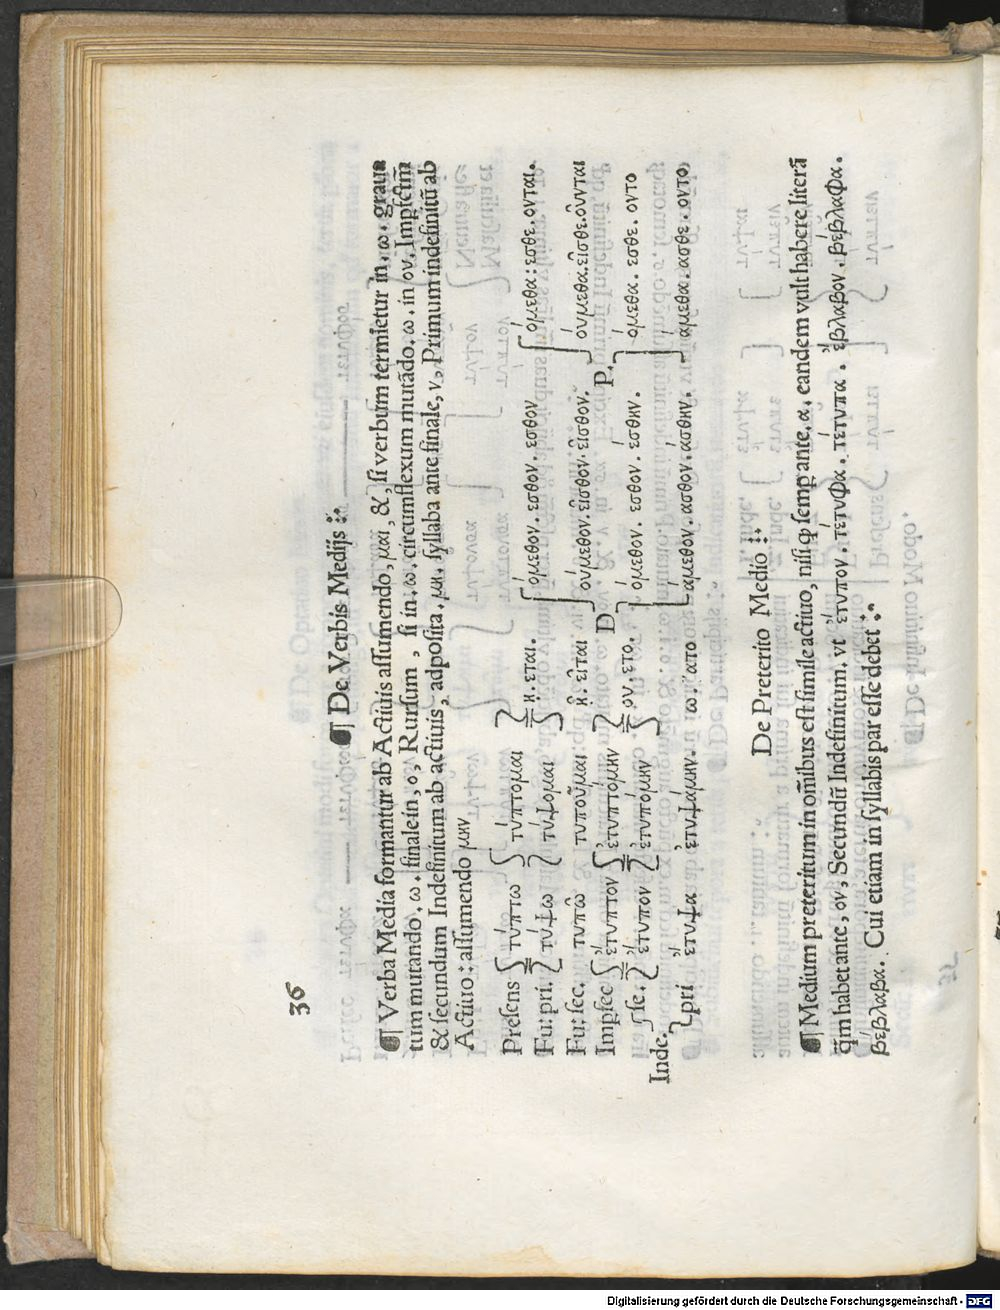 36
¶ De Verbis Medijs
¶ Verba Media formantur ab Actiuis assumendo, μαι, &, si verbum termietur in, ω, graua
tum mutando, ω, finale in, ο, Rursum, si in, ω, circumflexum mutādo, ω, in ου, Impfctm̄
& secundum Indefinitum ab actiuis, adposita, μη, syllaba ante finale, ν, Primum indefinitū ab
Actiuo: assumendo μην
Presens τύπτω τύπτομαι η. εται. όμεθον. εσθον. εσθον όμεθα: εσθε. ονται.
Fu: pri. τύψω τύψομαι
Fu: sec. τυπῶ τυποῦμαι ῆ. εῖται ούμεθον. εῖσθον. εῖσθον. ούμεθα. εῖσθε. οῦνται
Impfec ἔτυπτον ἐτυπτόμην ου. ετο. D όμεθον. εσθον. έσθην. P. όμεθα. εσθε. οντο
se. ἔτυπον ἐτυπόμην
Inde. pri ἔτυψα ἐτυψάμην. ω. ατο άμεθον. ασθον. άσθην. άμεθα. ασθε. οντο
De Preterito Medio
¶ Medium preteritum in om̄ibus est simile actiuo, nisi φ semp ante, α, eandem vult habere literā
q̄m habet ante, ον, Secundū Indefinitum. vt ἔτυπον. τέτυφα. τέτυπα. ἔβλαβον. βέβλαφα.
βέβλαβα. Cui etiam in syllabis par esse debet
Digitalisierung gefördert durch die Deutsche Forschungsgemeinschaft - DFG